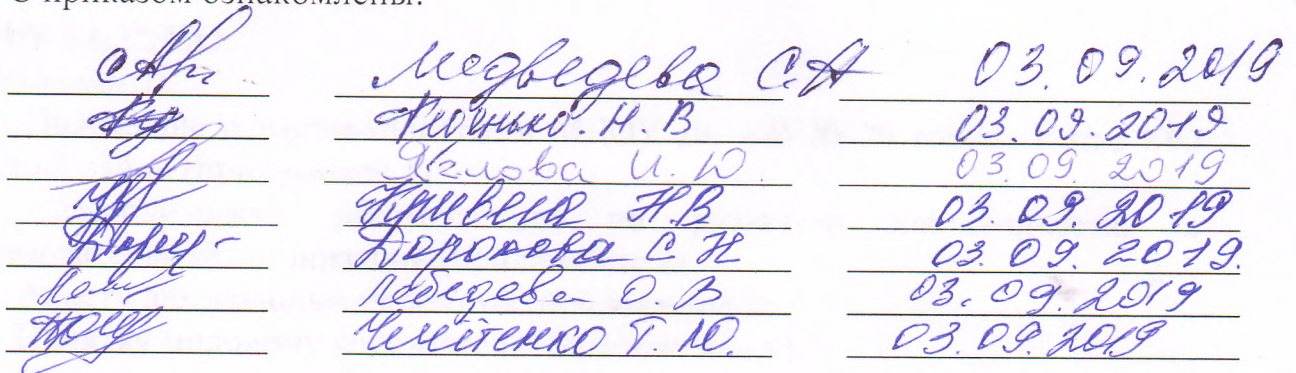 С приказом ознакомлены:
Медведева С.А 03.09.2019
Н В 03.09.2019
Яглова И. Ю. 03.09.2019
Кривега Н В 03.09.2019
Доронова С Н 03.09.2019.
Лебедева О В 03.09.2019
Т. Ю. 03.09.2019